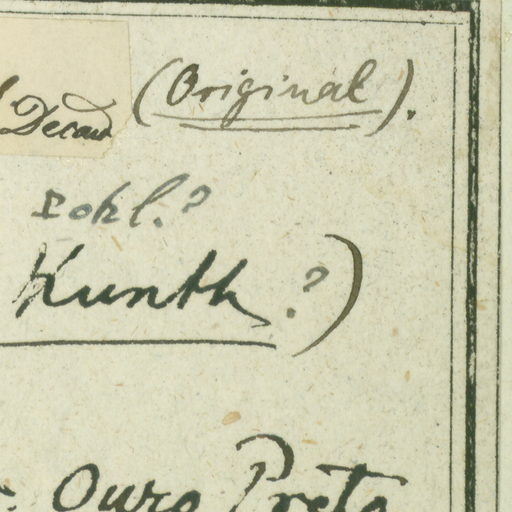 Decad (Original).
?
Kunth ?)
Ouro Preto